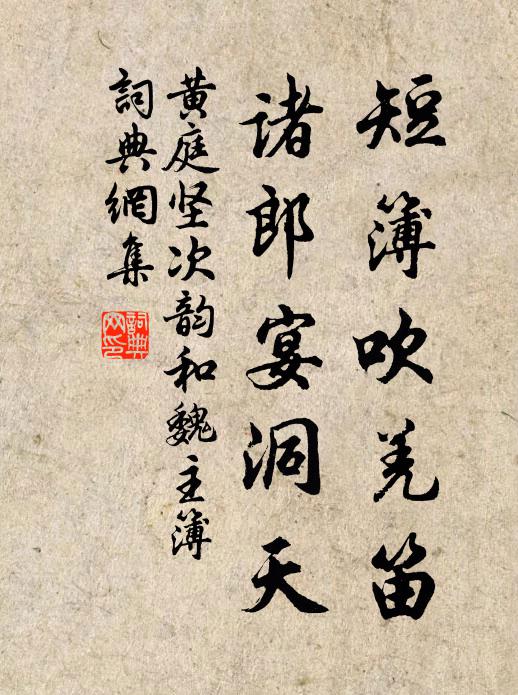 短簿吹羌笛
诸郎宴洞天
黄庭坚次韵和魏主簿
詞典網集
詞典网印